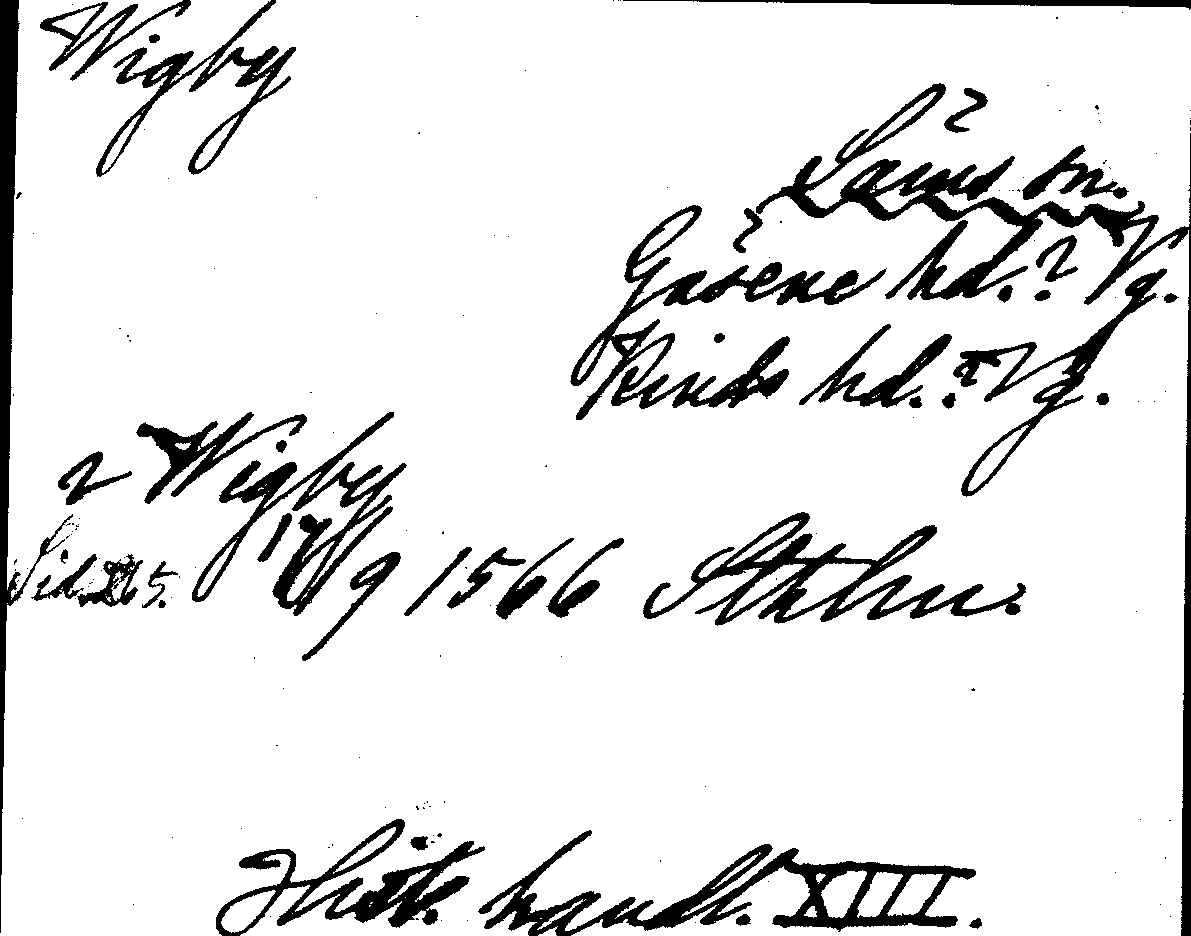 Wigby
?
Sams sn.
Gäsene hd.? Vg.
Kinds hd.? Vg.
2 Wigby
Sid. 265. 17/9 1566 Sthlm.
Hist. handl. XIII.